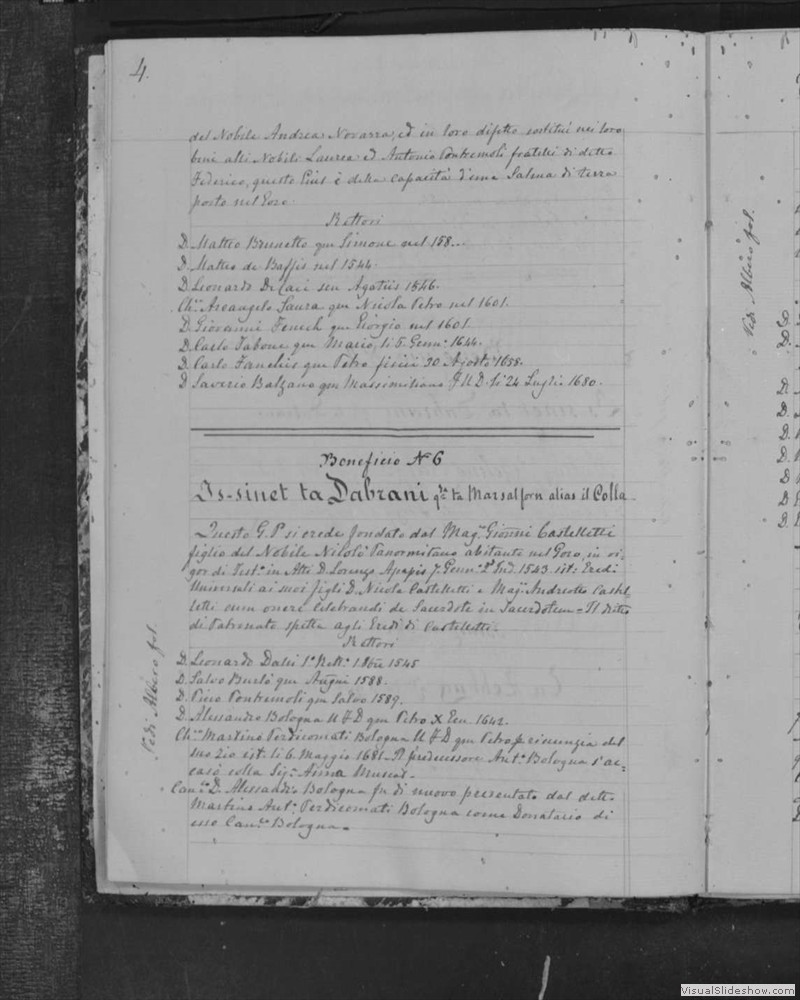 4.
del Nobile Andrea Novarra, ed in loro difetto sostituì nei loro
beni alti Nobili Laurea ed Antonio Pontremoli fratelli di detto
Federico, questo Gius è della capacità d'una Salma di terra
posto nel Gozo.
Rettori
D. Matteo Brunetto qm Simone nel 158...
D. Matteo de Baffis nel 1544.
D. Leonardo De seu Agatiis 1546.
Ch.º Arcangelo Saura qm Nicola Petro nel 1601.
D. Giovanni Fenech qm Giorgio nel 1601.
D. Carlo Tabone qm Mario, li 5 Genn.º 1644.
D. Carlo qm Petro 30 Agosto 1658.
D. Saverio Balzano qm Massimiliano J.U.D. li 24 Luglio 1680.
Beneficio Nº 6
Is-sinet ta Dabrani q.ta ta Marsalforn alias il Colla
Questo G. P. si crede fondato dal Mag.co Gionni Castelletti
figlio del Nobile Nicolò Panormitano abitante nel Gozo, in vi-
gor di Test.º in Atti D. Lorenzo Apapis 7 Genn.º Ind. 1543. ist: Eredi
Universali ai suoi figli D. Nicola Castelletti e Mag.co Andreotto Castel-
letti cum onere Celebrandi de Sacerdote in Sacerdotem = Il dritto
di Patronato spetta agli Eredi di Castelletti.
Rettori
D. Leonardo Dalli 1º Rett.º 1545
D. Salvo Burlò qm 1588.
D. Pontremoli qm Salvo 1589.
D. Alessandro Bologna U J D qm Petro X 1642.
Ch.º Martino Perdicomati Bologna U J D qm Petro p rinunzia del
suo zio ist. li 6. Maggio 1681. Il predecessore Ant.º Bologna s'ac-
casò colla Sig.ª Muscat.
Can.co D. Alessandro Bologna fu di nuovo presentato dal detto
Martino Ant.º Perdicomati Bologna come Donatario di
esso Can.co Bologna.
Vedi Albero fol.
Vedi Albero fol.
D.
D.
D.
D.
VisualSlideshow.com